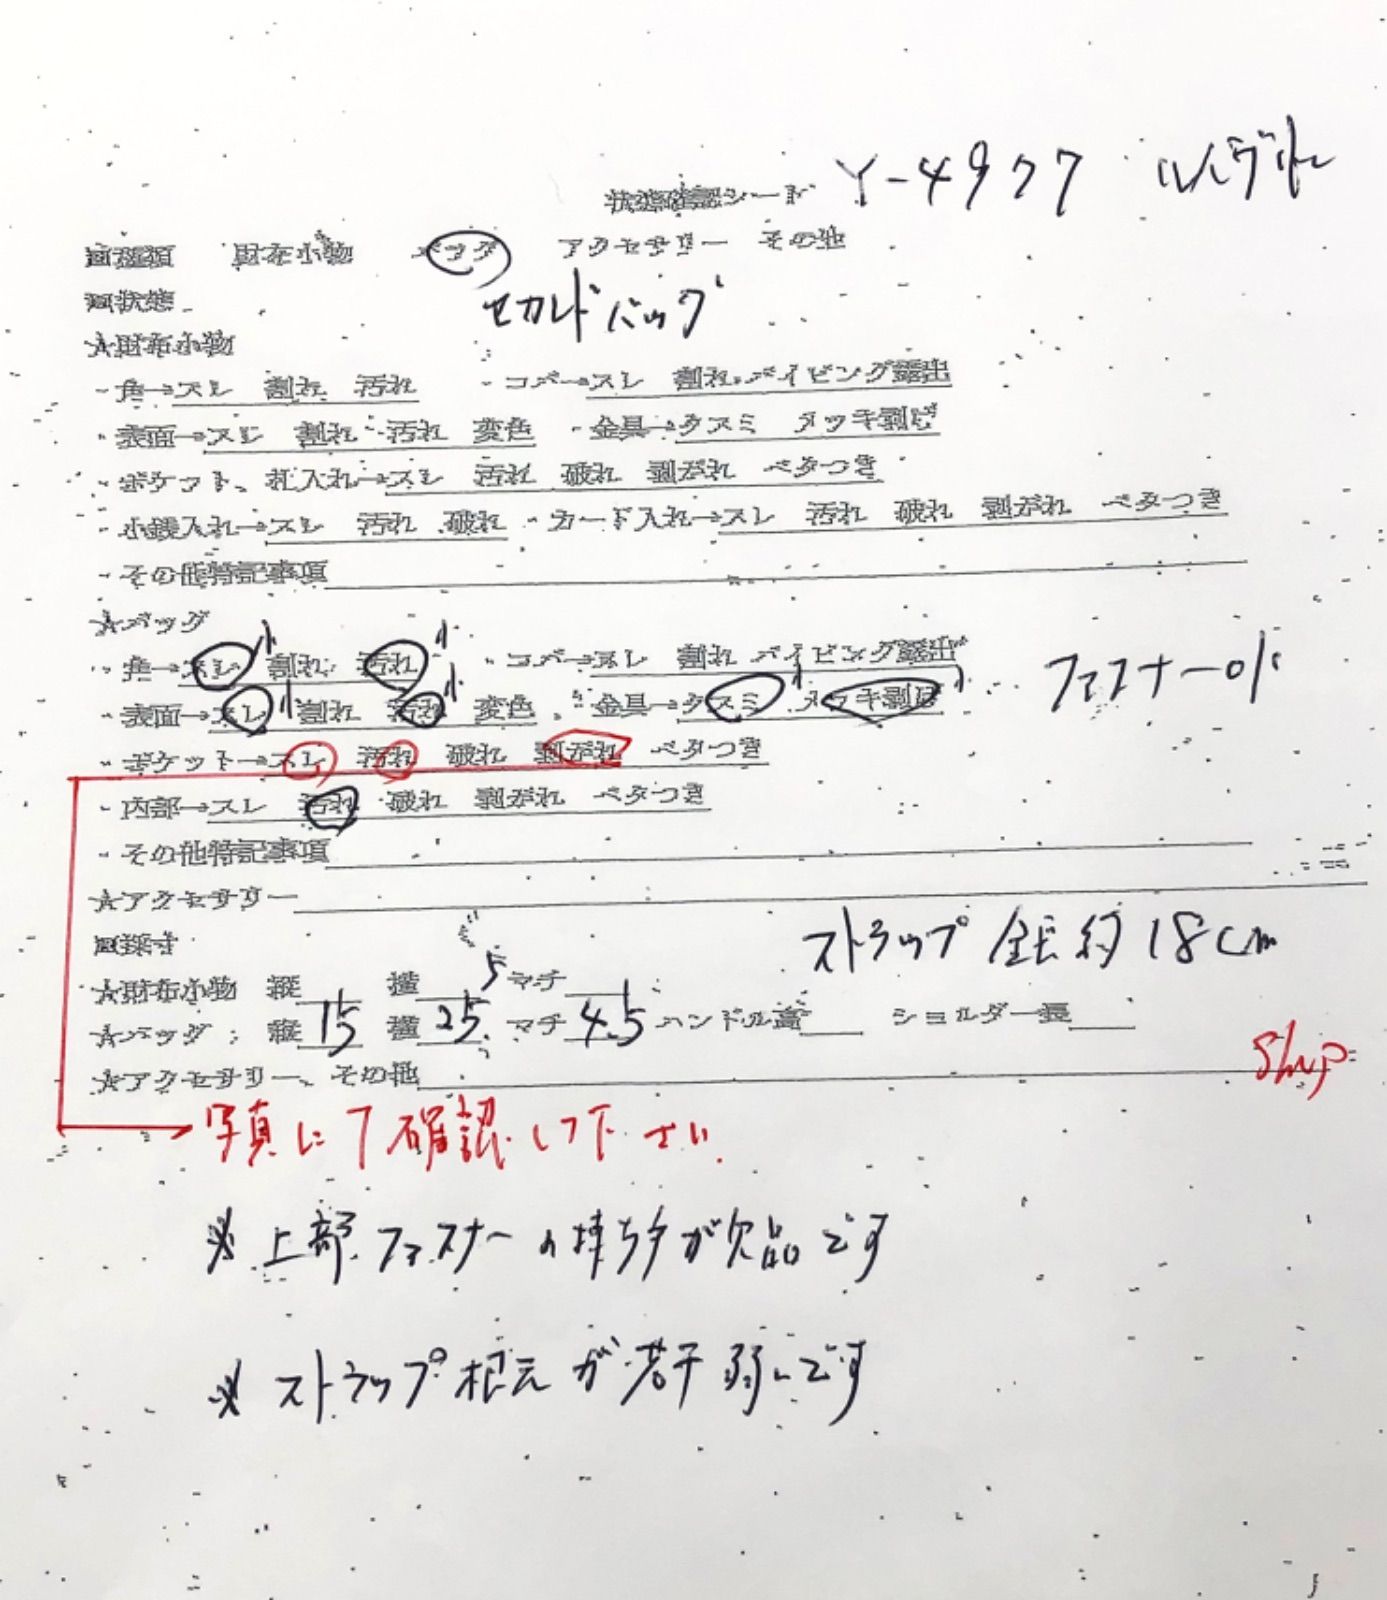 状態確認シード Y-4977
回種類 財布小物 バッグ アクセサリー その他
セカンドバッグ
回状態
☆財布小物
・角→スレ 割れ 汚れ ・コバ→スレ 割れ パイピング露出
・表面→スレ 割れ 汚れ 変色 ・金具→クスミ メッキ剥げ
・ポケット、札入れ→スレ 汚れ 破れ 剥がれ ベタつき
・小銭入れ→スレ 汚れ 破れ ・カード入れ→スレ 汚れ 破れ 剥がれ ベタつき
・その他特記事項
☆バッグ
・角→スレ小 割れ 汚れ小 ・コバ→スレ 割れ パイピング露出
・表面→スレ小 割れ 汚れ小 変色 ・金具→クスミ小 メッキ剥げ小 ファスナーOK
・ポケット→スレ 汚れ 破れ 剥がれ ベタつき
・内部→スレ 汚れ 破れ 剥がれ ベタつき
・その他特記事項
☆アクセサリー
回採寸
ストラップ 全長約18cm
☆財布小物 縦 横 マチ
☆バッグ 縦15 横25.5 マチ4.5 ハンドル高 ショルダー長
☆アクセサリー、その他
写真にて確認して下さい
※上部ファスナーの持ち手が欠品です
※ストラップ根元が若干弱いです